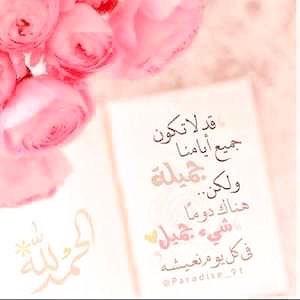 قد لا تكون
جميع أيامنا
جميلة
ولكن..
هناك دومًا
شيء جميل
في كل يوم نعيشه
@Paradise_91
الحمد لله